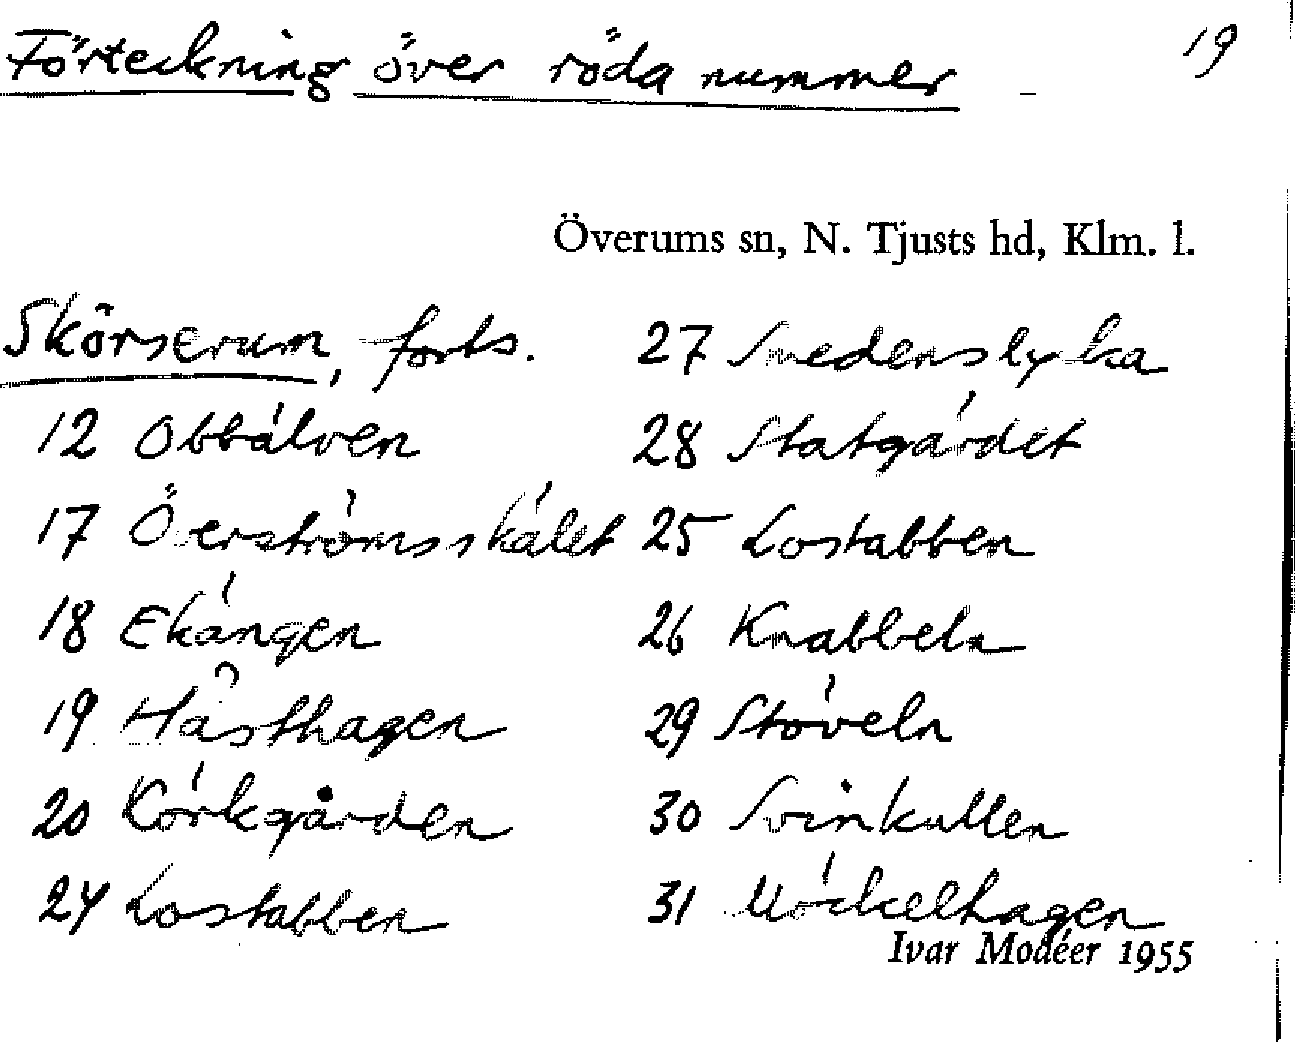 Förteckning över röda nummer
19
Överums sn, N. Tjusts hd, Klm. l.
Skörserum, forts.
12 Obbálven
17 Överströmsskálet
18 Ekángen
19 Hásthagen
20 Kórkgården
24 Lostabben
27 Smedenslycka
28 Statgárdet
25 Lostabben
26 Knabbeln
29 Stóveln
30 Svinkullen
31 Móckelhagen
Ivar Modéer 1955